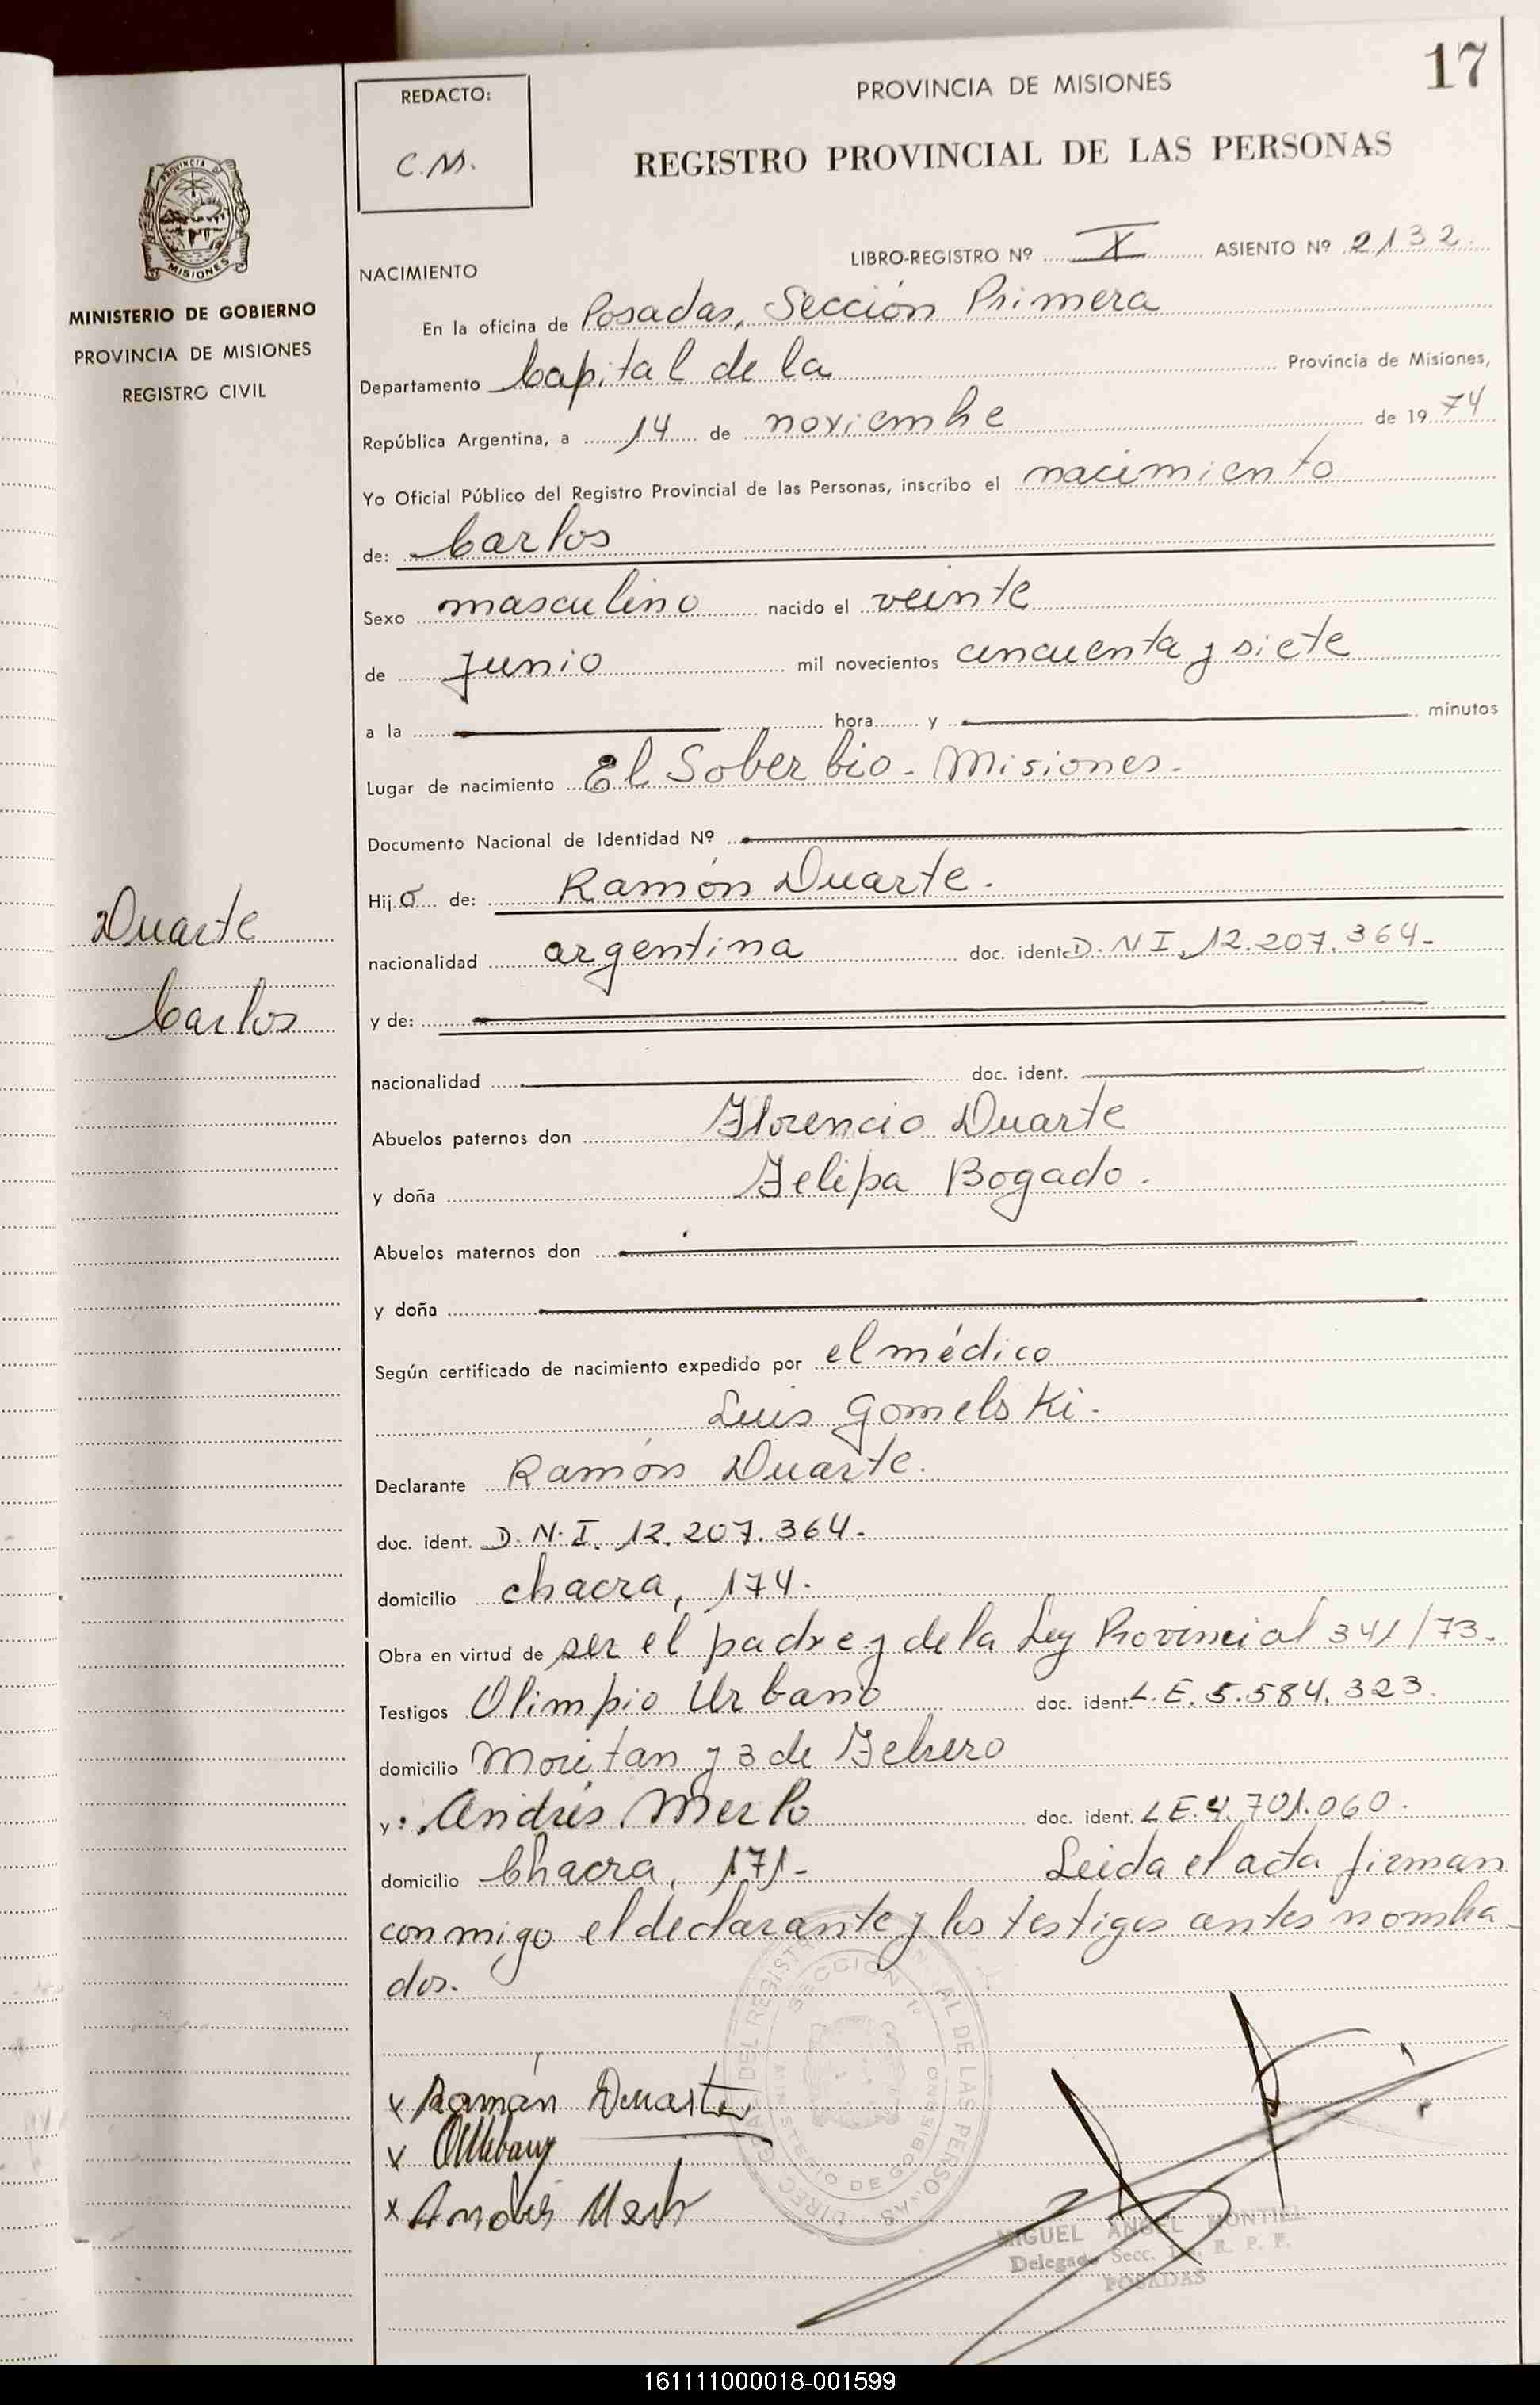 17
REDACTO:
C.M.
PROVINCIA DE MISIONES
REGISTRO PROVINCIAL DE LAS PERSONAS
PROVINCIA DE
MISIONES
MINISTERIO DE GOBIERNO
PROVINCIA DE MISIONES
REGISTRO CIVIL
LIBRO-REGISTRO Nº X ASIENTO Nº 2132.
NACIMIENTO
En la oficina de Posadas, Sección Primera
Departamento Capital de la Provincia de Misiones,
República Argentina, a 14 de noviembre de 1974
Yo Oficial Público del Registro Provincial de las Personas, inscribo el nacimiento
de: Carlos
Sexo masculino nacido el veinte
de junio mil novecientos cincuenta y siete
a la hora y minutos
Lugar de nacimiento El Soberbio - Misiones -
Documento Nacional de Identidad Nº
Duarte
Carlos
Hijo de: Ramón Duarte.
nacionalidad argentina doc. ident. D.N.I. 12.207.364-
y de:
nacionalidad doc. ident.
Abuelos paternos don Florencio Duarte
y doña Felipa Bogado.
Abuelos maternos don
y doña
Según certificado de nacimiento expedido por el médico
Luis Gomelski -
Declarante Ramón Duarte.
doc. ident. D.N.I. 12.207.364-
domicilio chacra, 174.
Obra en virtud de ser el padre y de la Ley Provincial 341/73-
Testigos Olimpio Urbano doc. ident. L.E. 5.584.323.
domicilio Moritan y 3 de Febrero
y: Andrés Merlo doc. ident. L.E. 4.701.060.
domicilio Chacra, 171- Leida el acta firman
conmigo el declarante y los testigos antes nombra-
dos.
x Ramón Duarte
x
x Andrés Merlo
SECCION 1ª
MINISTERIO DE GOBIERNO
MIGUEL ANGEL MONTIEL
Delegado Secc. 1a. R. P. P.
POSADAS
161111000018-001599